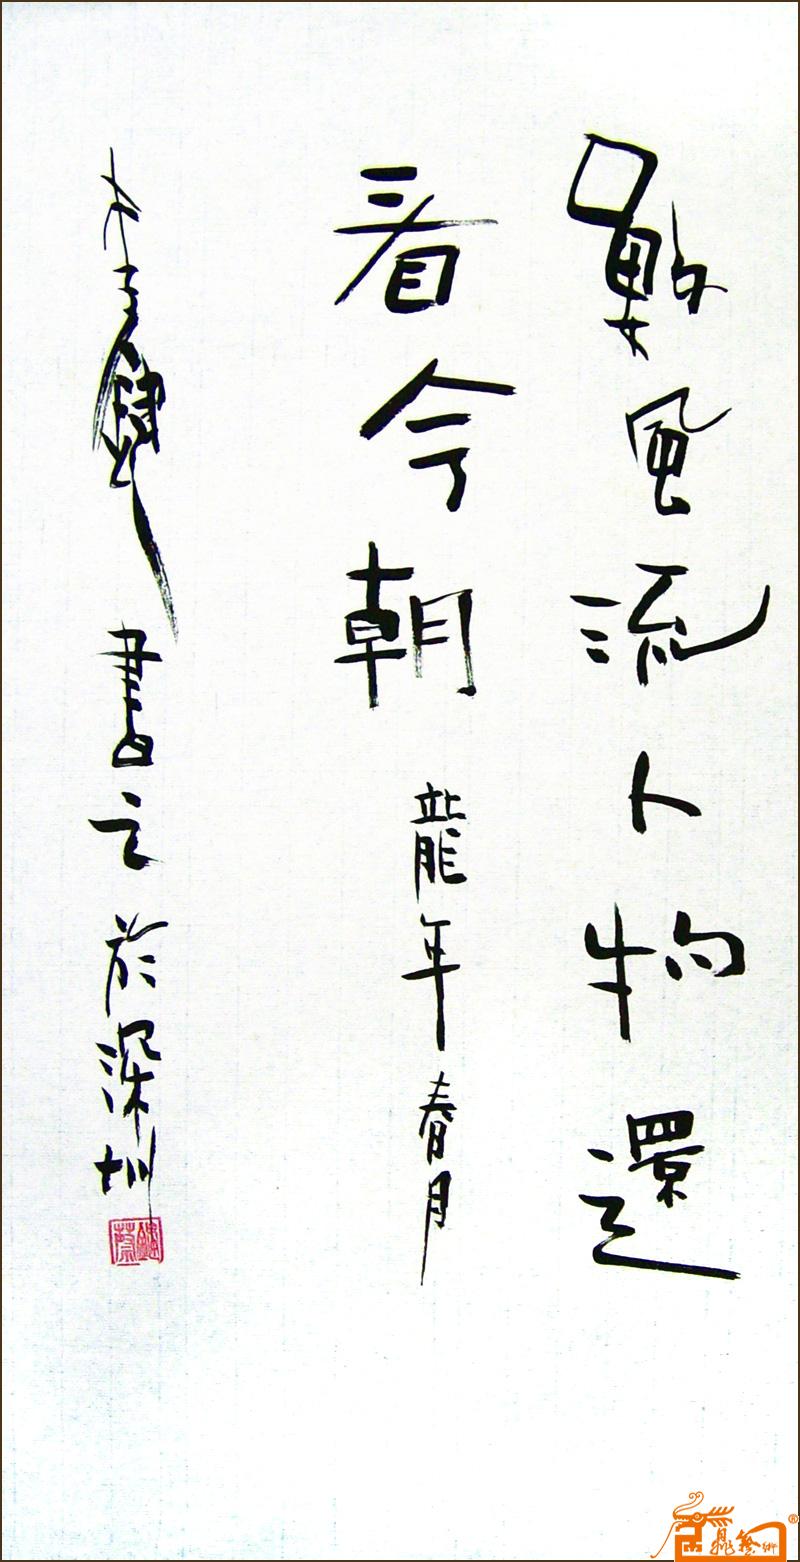 數風流人物還
看今朝 龍年春月
書之於深圳